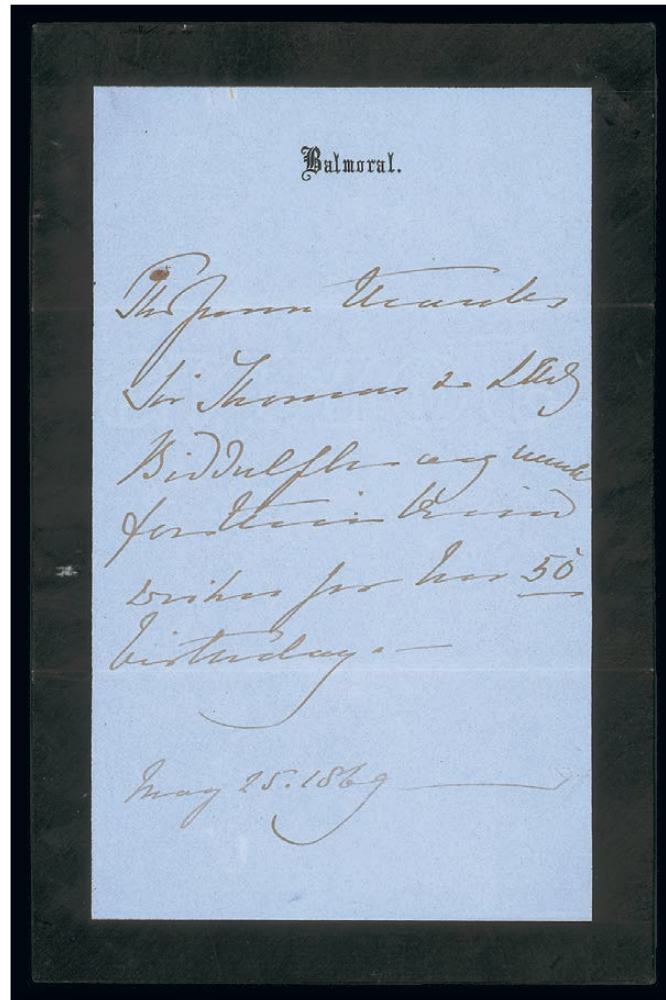 Balmoral.
The Queen thanks
Sir Thomas & Lady
Biddulph very much
for their kind
wishes for her 50
birthday. —
May 25. 1869 —